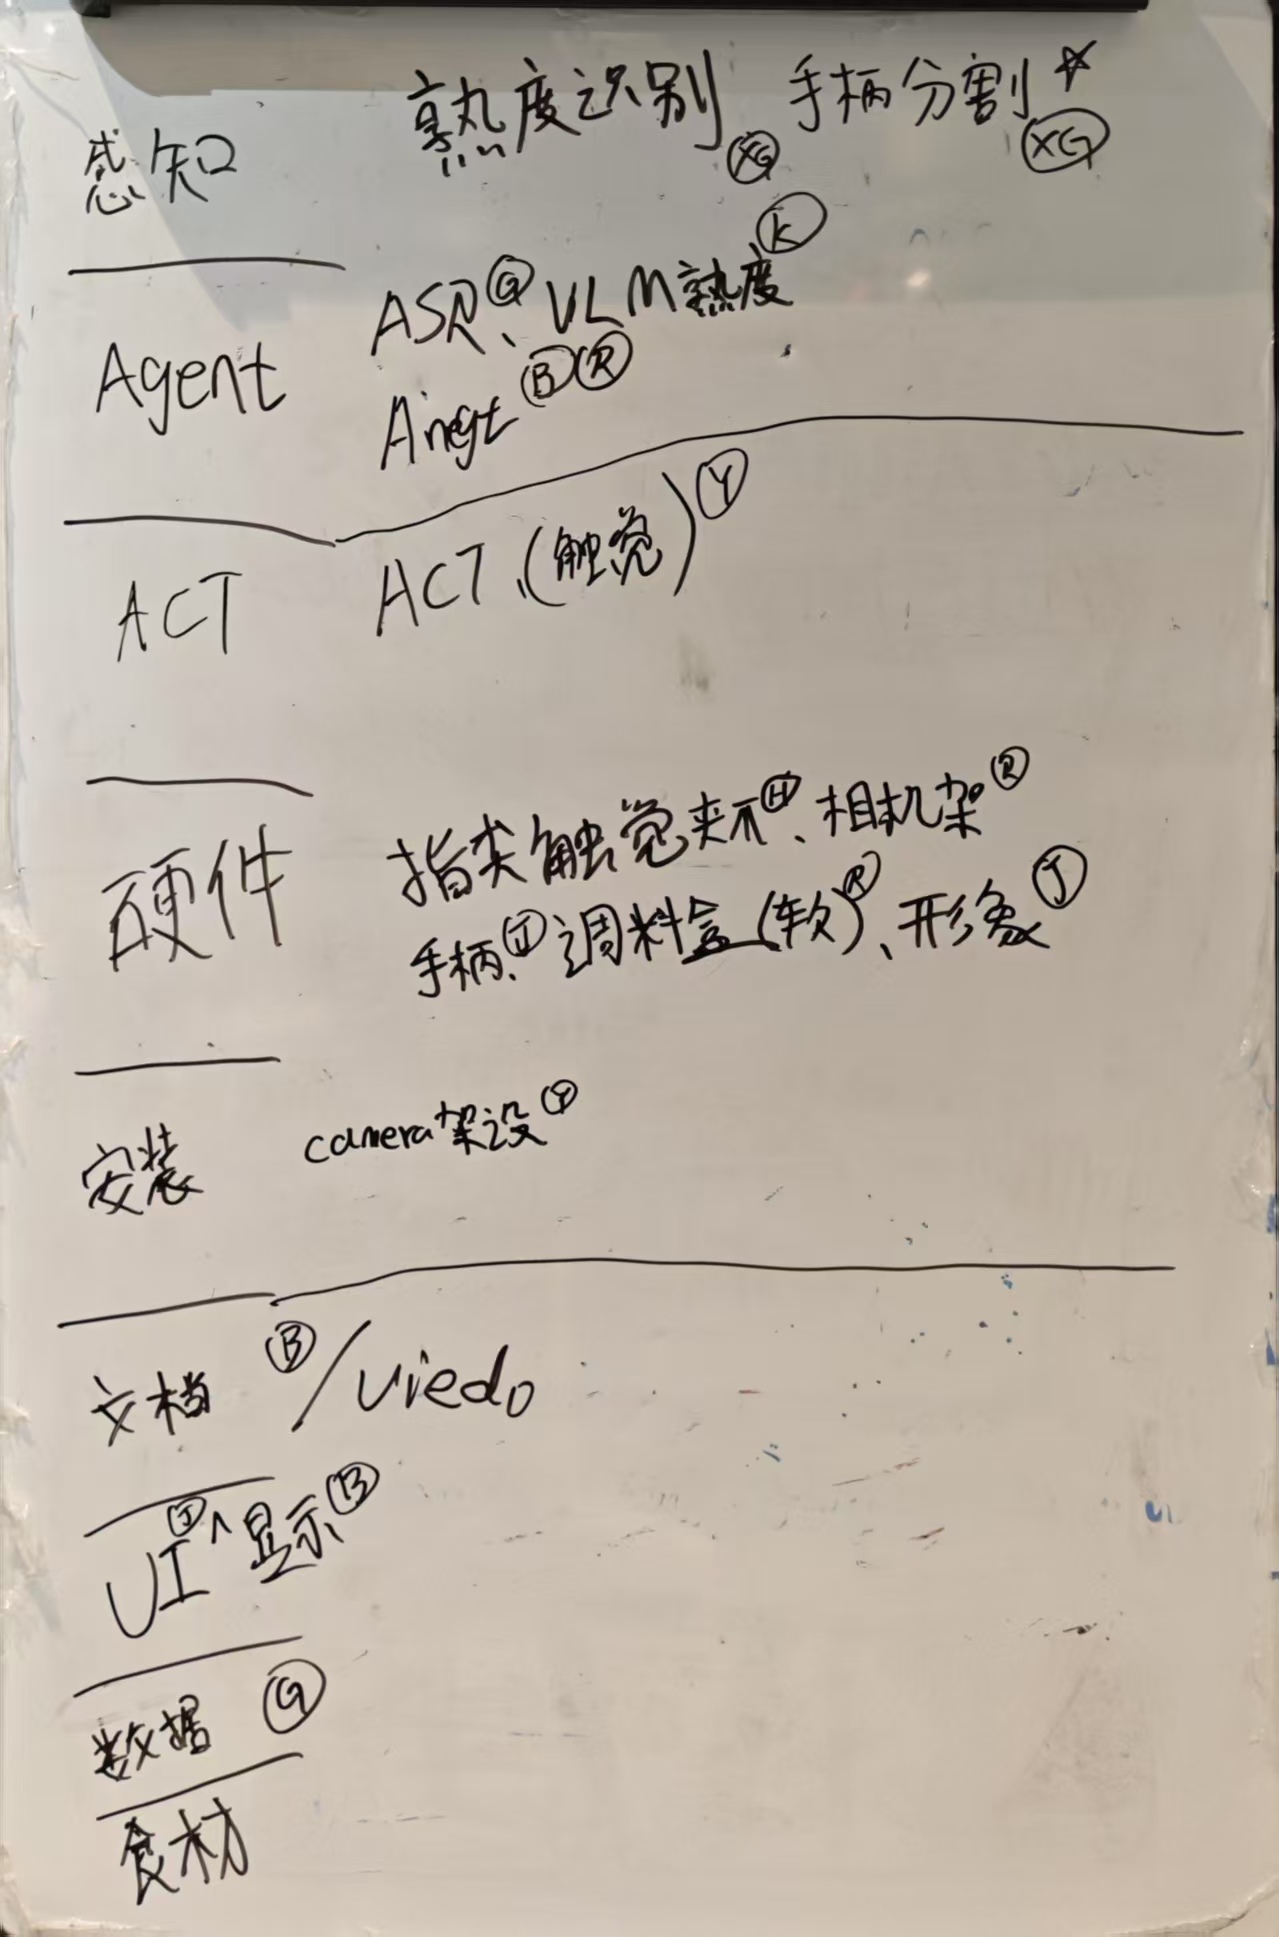 感知 熟度识别 XG 手柄分割☆ XG
Agent ASR G、VLM熟度 K
Aingt B R
ACT ACT、(触觉) Y
硬件 指尖触觉夹爪 H、相机架 R
手柄、J 调料盒(软) R、形象 J
安装 camera架设 Y
文档 B /viedo
UI J ^ 显示 B
数据 G
食材